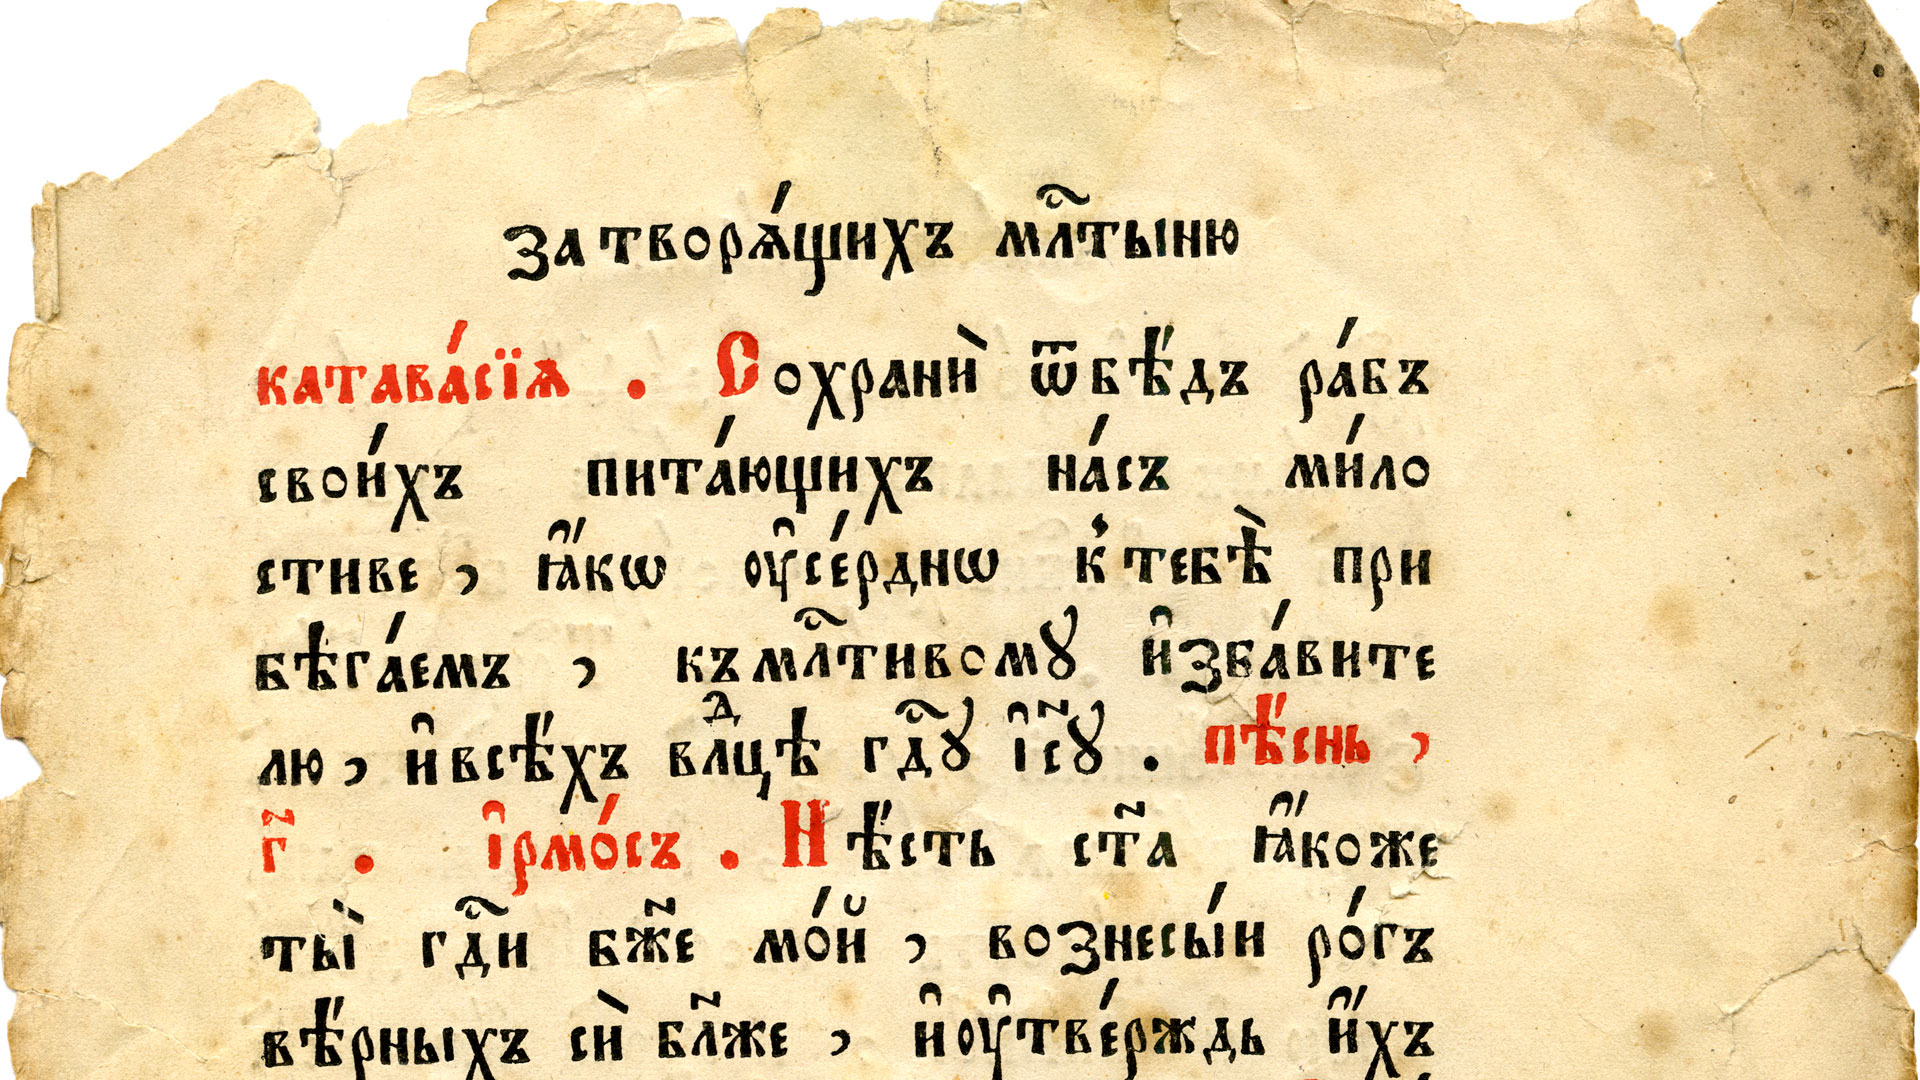 За творѧ́щихъ мл҃тыню
катава́сїѧ . Сохранѝ ѿбѣ́дъ ра́бъ
свои́хъ пита́ющихъ на́съ ми́ло
стиве , ꙗ҆́кѡ ᲂу҆се́рднѡ к̾тебѣ̀ при
бѣга́емъ , къмл҃тивомꙋ и҆зба́вите
лю , и҆всѣ́хъ влⷣцѣ гд҃ꙋ і҆с҃ꙋ . пѣ́снь ,
г҃ . і҆рмо́съ . Нѣ́сть ст҃а ꙗ҆́коже
ты̀ гд҃и бж҃е мо́й , вознесы́и ро́гъ
вѣ́рныхъ сѝ бл҃же , и҆ᲂу҆тве́рждь и҆́хъ